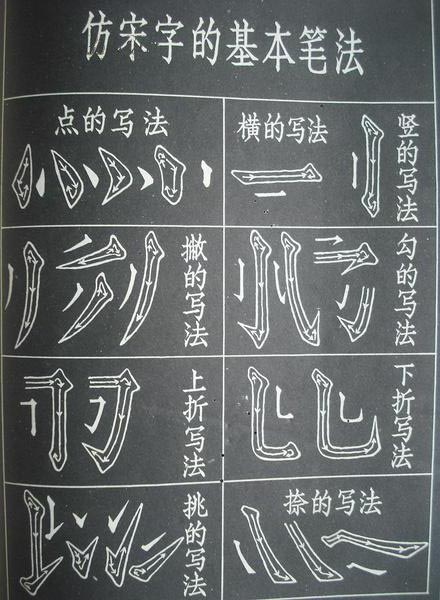 仿宋字的基本笔法
点的写法
横的写法
竖的写法
撇的写法
勾的写法
上折写法
下折写法
挑的写法
捺的写法